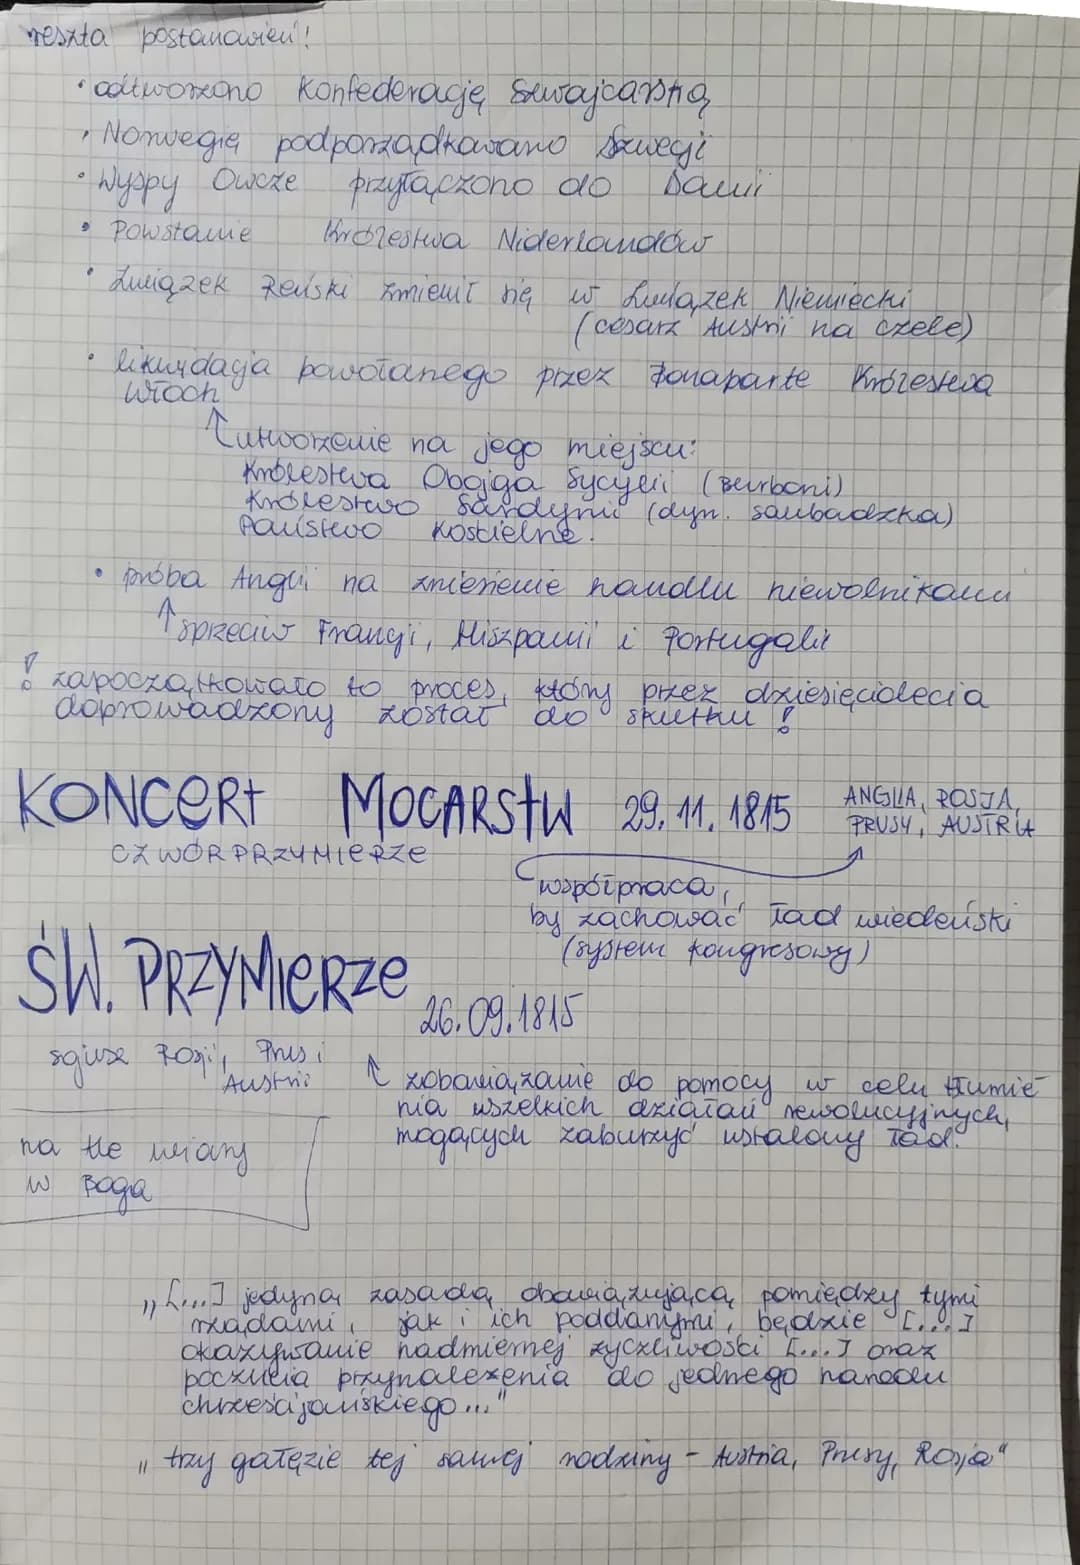 reszta postanowień!
• odtworzono Konfederację Szwajcarską
• Norwegię podporządkowano Szwecji
• Wyspy Owcze przyłączono do Danii
• Powstanie Królestwa Niderlandów
• Związek Reński zmienił się w Związek Niemiecki
(cesarz Austrii na czele)
• likwidacja powołanego przez Bonaparte Królestwa
Włoch
↑ utworzenie na jego miejscu:
Królestwa Obojga Sycylii (Burboni)
Królestwo Sardynii (dyn. saubadzka)
Państwo Kościelne.
• próba Anglii na zniesienie handlu niewolnikami
↑ sprzeciw Francji, Hiszpanii i Portugalii
! zapoczątkowało to proces, który przez dziesięciolecia
doprowadzony został do skutku !
KONCERT MOCARSTW 29.11.1815 ANGLIA, ROSJA,
PRUSY, AUSTRIA
CZWÓRPRZYMIERZE
współpraca,
by zachować ład wiedeński
(system kongresowy)
ŚW. PRZYMIERZE
26.09.1815
sojusz Rosji, Prus i
Austrii
↑ zobowiązanie do pomocy w celu tłumie
nia wszelkich działań rewolucyjnych,
mogących zaburzyć ustalony ład.
na tle wiary
w Boga
„[...] jedyną zasadą obowiązującą pomiędzy tymi
rządami, jak i ich poddanymi, będzie [...]
okazywanie nadmiernej życzliwości [...] oraz
poczucia przynależenia do jednego narodu
chrześcijańskiego..."
„trzy gałęzie tej samej rodziny - Austria, Prusy, Rosja"